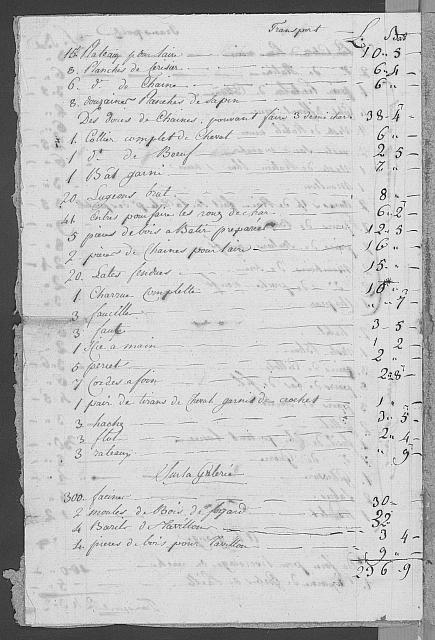 Transport L. Bat
15. Plateaux pour lain 10 " 5
8. Planches de Cerisier 6 " 4
6. d° de Chaine 6 "
8. douzaines Planches de Sapin
Des doues de Chaines, pouvant faire 3 demi char 38 " 4
1. Collier complet de Cheval 6 "
1 d° de Boeuf 2 " 5
1 Bât garni 7 "
20. Lugeons brut 8 "
41 pour faire les roues de char 6 " 2
5 pieces de bois à Batir preparée 12 " 5
2 pieces de Chaines pour faire 16 "
20. Lates fendues 15 "
1 Charrue Complette 10 "
3 faucille " 7
3 faulx 3 " 5
1 Scie à main 1 2
5 percet 2 "
7 Cordes à foin 2 " 8
1 pair de tirans de Cheval garnis de crochet 1 "
3 hache 3 " 5
3 2 " 4
3 rateaux " 9
Sur la Galerie
300. facine 30 "
2 moules de Bois de foyard 32 "
4 Barets de Pavillon 3 4
4. pieces de bois pour Pavillon 9 "
236 " 9